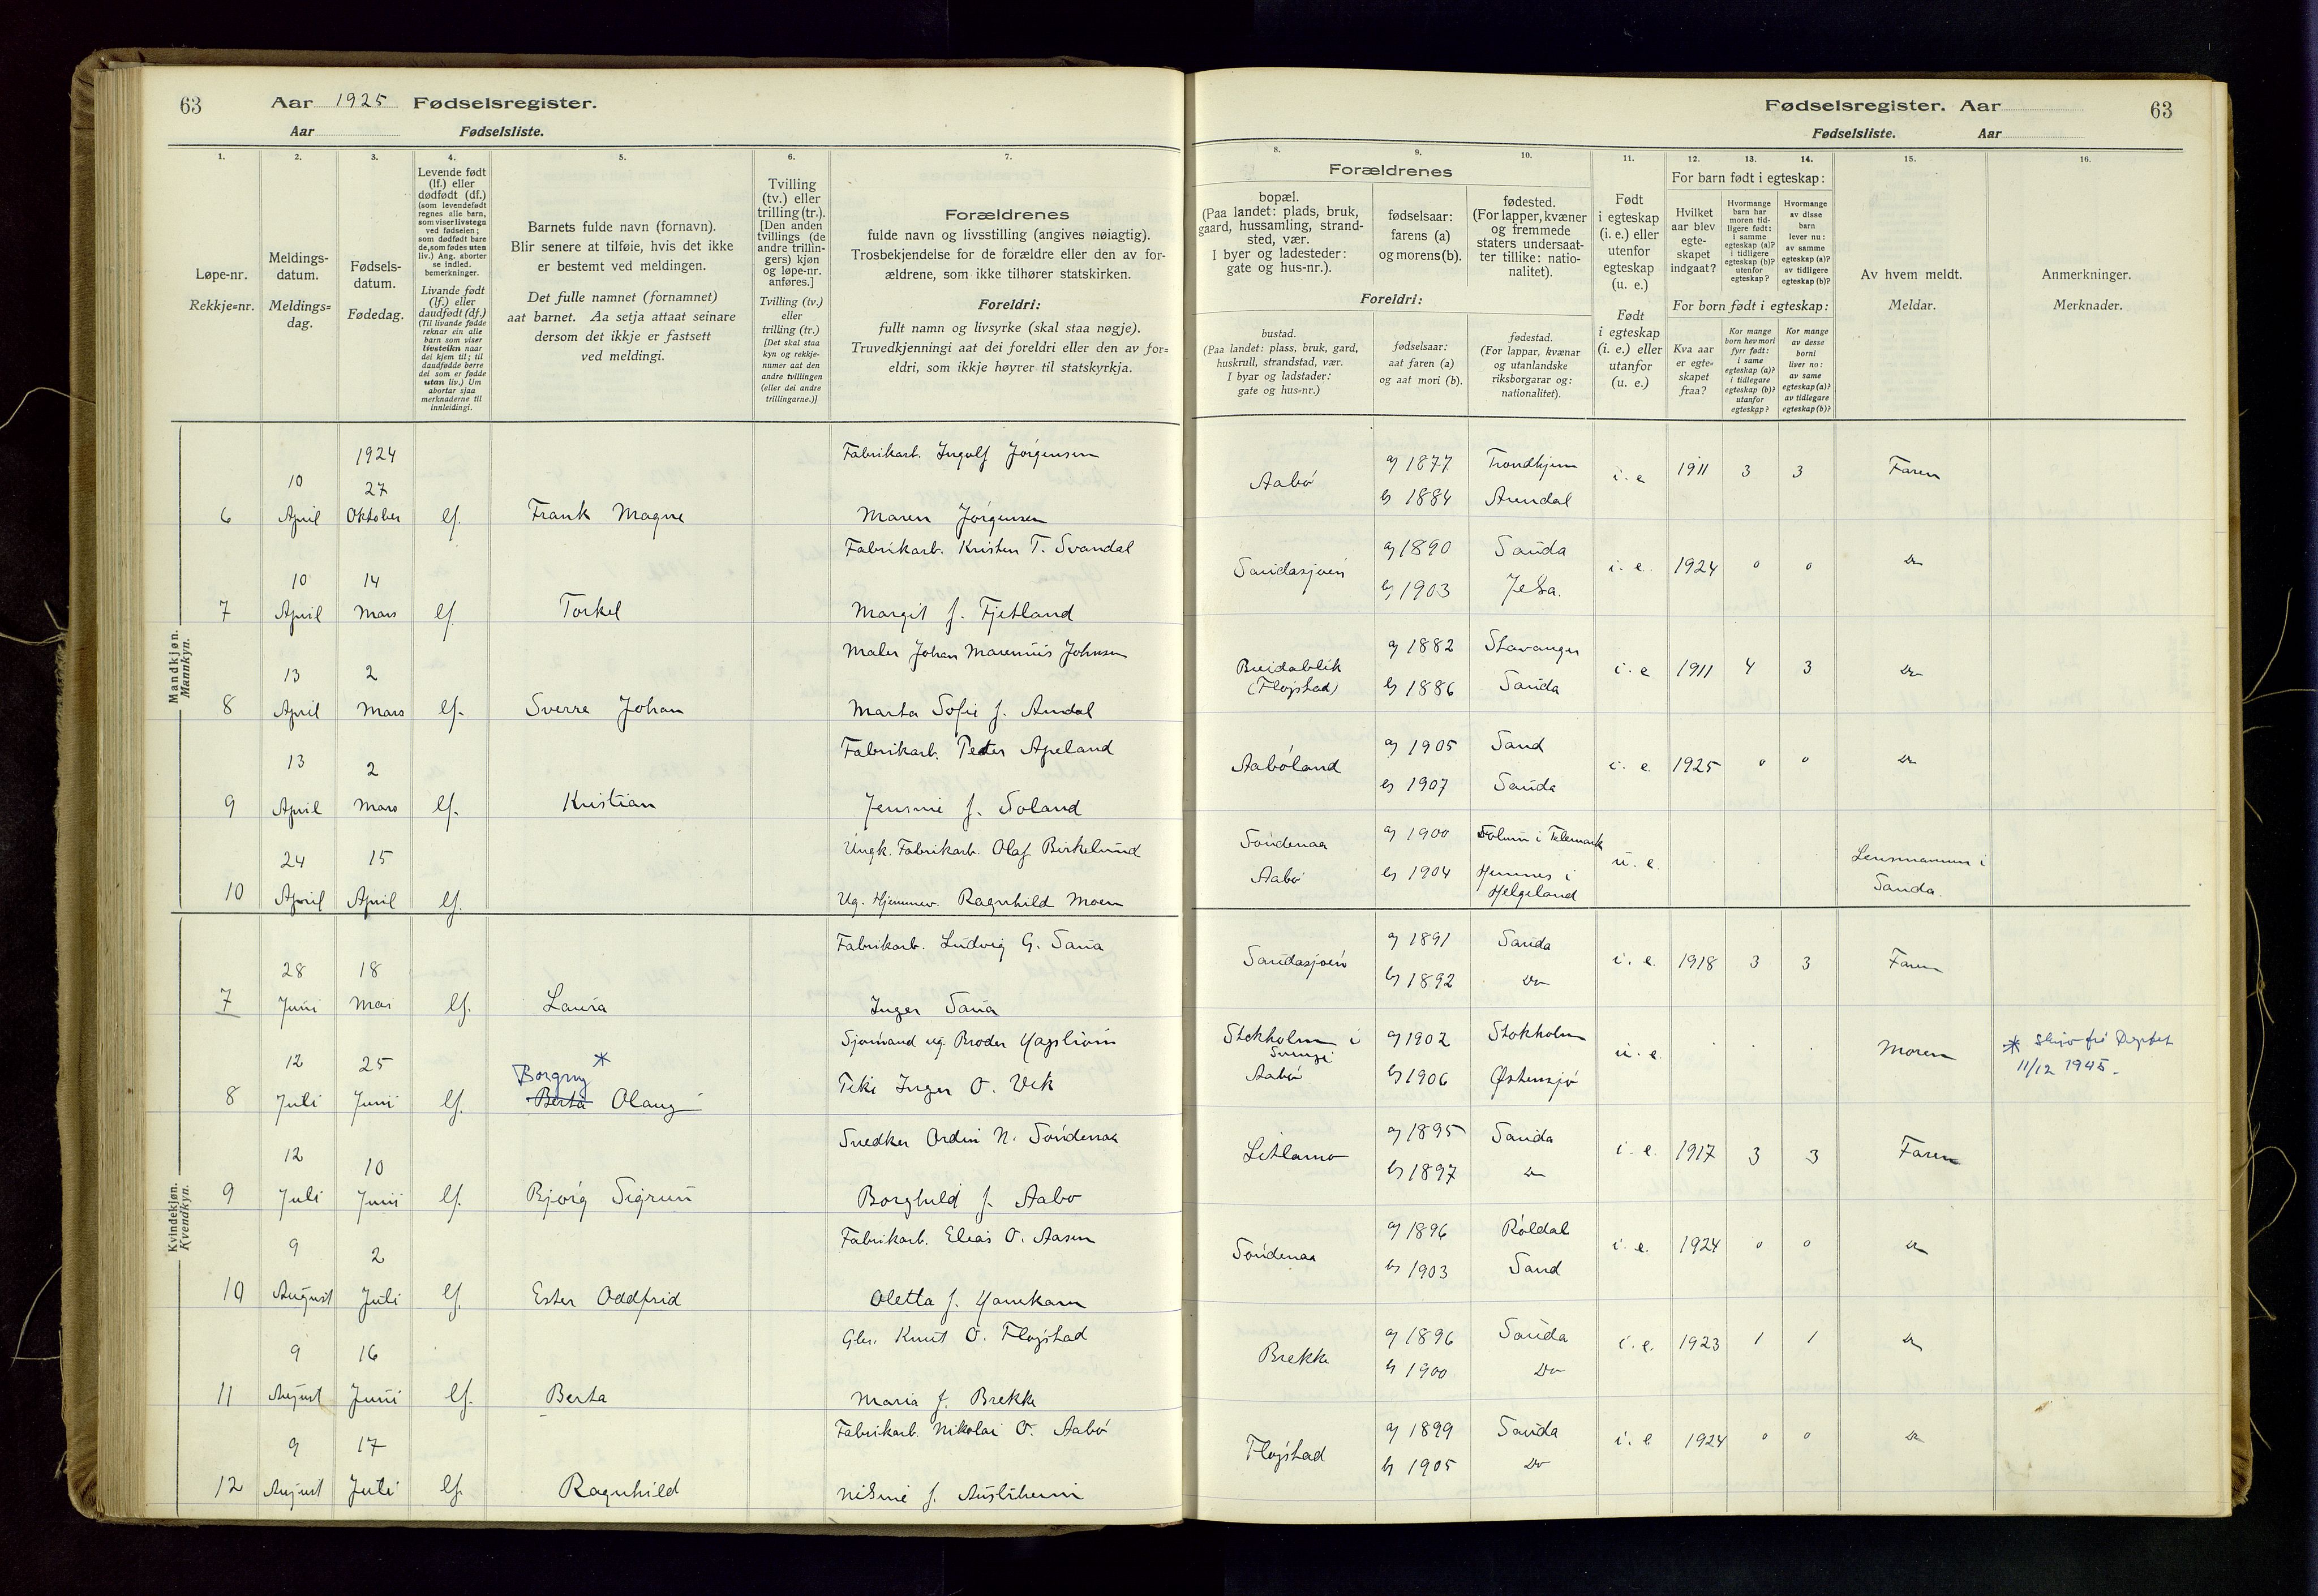 63 Aar 1925 Fødselsregister.
Aar Fødselsliste.
1. 2. 3. 4. 5. 6. 7.
Løpe-nr.
Rekkje=nr.
Meldings-
datum.
Meldings=
dag.
Fødsels-
datum.
Fødedag.
Levende født
(lf.) eller
dødfødt (df.)
(som levendefødt
regnes alle barn,
som viser livstegn
ved fødselen;
som dødfødt bare
de, som fødes uten
liv.) Ang. aborter
se indled.
bemerkninger.
Livande født
(lf.) eller
daudfødt (df.)
(Til livande fødde
reknar ein alle
barn som viser
livsteikn naar
dei kjem til; til
daudfødde berre
dei som er fødde
utan liv.) Um
abortar sjaa
merknaderne til
innleidingi.
Barnets fulde navn (fornavn).
Blir senere at tilføie, hvis det ikke
er bestemt ved meldingen.
Det fulle namnet (fornamnet)
aat barnet. Aa setja attaat seinare
dersom det ikkje er fastsett
ved meldingi.
Tvilling
(tv.) eller
trilling (tr.).
[Den anden
tvillings (de
andre trillin-
gers) kjøn
og løpe-nr.
anføres.]
Tvilling (tv.)
eller
trilling (tr.)
[Det skal staa
kyn og rekkje-
numer aat den
andre tvillingen
(eller dei andre
trillingarne.)]
Forældrenes
fulde navn og livsstilling (angives nøiagtig).
Trosbekjendelse for de forældre eller den av for-
ældrene, som ikke tilhører statskirken.
Foreldri:
fullt namn og livsyrke (skal staa nøgje).
Truvedkjenningi aat dei foreldri eller den av for=
eldri, som ikkje høyrer til statskyrkja.
Fødselsregister. Aar 63
Fødselsliste. Aar
8. 9. 10. 11. 12. 13. 14. 15. 16.
Forældrenes
bopæl.
(Paa landet: plads, bruk,
gaard, hussamling, strand-
sted, vær.
I byer og ladesteder:
gate og hus-nr.).
fødselsaar:
farens (a)
og morens (b).
fødested.
(For lapper, kvæner
og fremmede
staters undersaat-
ter tillike: natio-
nalitet).
Foreldri:
bustad.
(Paa landet: plass, bruk, gard,
huskrull, strandstad, vær.
I byar og ladstader:
gate og hus=nr.)
fødselsaar:
aat faren (a)
og aat mori (b).
fødestad.
(For lappar, kvænar
og utanlandske
riksborgarar og:
nationalitet).
Født
i egteskap
(i. e.) eller
utenfor
egteskap
(u. e.)
Født
i egteskap
(i. e.) eller
utanfor
(u. e.)
For barn født i egteskap:
Hvilket
aar blev
egte-
skapet
indgaat?
Hvormange
barn har
moren tid-
ligere født:
i samme
egteskap (a)?
i tidligere
egteskap (b)?
utenfor
egteskap?
Hvormange
av disse
barn
lever nu:
av samme
egteskap (a)?
av tidligere
egteskap (b)?
For born født i egteskap:
Kva aar
er egte-
skapet
fraa?
Kor mange
born hev mori
fyrr født:
i same
egteskap (a)?
i tidlegare
egteskap (b)?
utanfor
egteskap?
Kor mange
av desse
borni
liver no:
av same
egteskap (a)?
av tidlegare
egteskap (b)?
Av hvem meldt.
Meldar.
Anmerkninger.
Merknader.
Mandkjøn.
Mannkyn.
1924 Fabrikarb. Ingolf Jørgensen
10 27
6 April Oktober lf. Frank Magne Maren Jørgensen
Aabø a) 1877 Trondhjem i. e. 1911 3 3 Faren
b) 1884 Arendal
Fabrikarb. Kristen T. Svandal
10 14
7 April Mars lf. Torkel Margit f. Fjetland
Saudasjøen a) 1890 Sauda i. e. 1924 0 0 Do
b) 1903 Jelsa.
Maler Johan Marenius Johnsen
13 2
8 April Mars lf. Sverre Johan Marta Sofie f. Amdal
Breidablik a) 1882 Stavanger i. e. 1911 4 3 Do
(Fløgstad) b) 1886 Sauda
Fabrikarb. Peder Apeland
13 2
9 April Mars lf. Kristian Jensine f. Soland
Aabøland a) 1905 Sand i. e. 1925 0 0 Do
b) 1907 Sauda
Ungk. Fabrikarb. Olaf Birkelund
24 15
10 April April lf. Ug. Hjemmev. Ragnhild Moen
Søndenaa a) 1900 Solum i Telemark u. e. Lensmannen i
Aabø b) 1904 Hemnes i Sauda.
Helgeland
Kvindekjøn.
Kvendkyn.
Fabrikarb. Ludvig G. Saua
28 18
7 Juni Mai lf. Laura Inger Saua
Saudasjøen a) 1891 Sauda i. e. 1918 3 3 Faren
b) 1892 Do
Sjømand ug. Broder Hagstrøm
12 25 Borgny *
8 Juli Juni lf. Berta Olaug Inger O. Vik
Stokholm i a) 1902 Stokholm u. e. Moren
Sverige
Aabø b) 1906 Østensjø
* 11/12 1945.
Snedker Ordin N. Søndenaa
12 10
9 Juli Juni lf. Bjørg Sigrun Borghild f. Aabø
Litlamo a) 1895 Sauda i. e. 1917 3 3 Faren
b) 1897 Do
Fabrikarb. Elias O. Aasen
9 2
10 August Juli lf. Ester Oddfrid Oletta f. Hanekam
Søndenaa a) 1896 Røldal i. e. 1924 0 0 Do
b) 1903 Sand
Gbr. Knut O. Fløgstad
9 16
11 August Juni lf. Berta Maria f. Brekke
Brekke a) 1896 Sauda i. e. 1923 1 1 Do
b) 1900 Do
Fabrikarb. Nikolai O. Aabø
9 17
12 August Juli lf. Ragnhild f. Austrheim
Fløgstad a) 1899 Sauda i. e. 1924 0 0 Do
b) 1905 Do